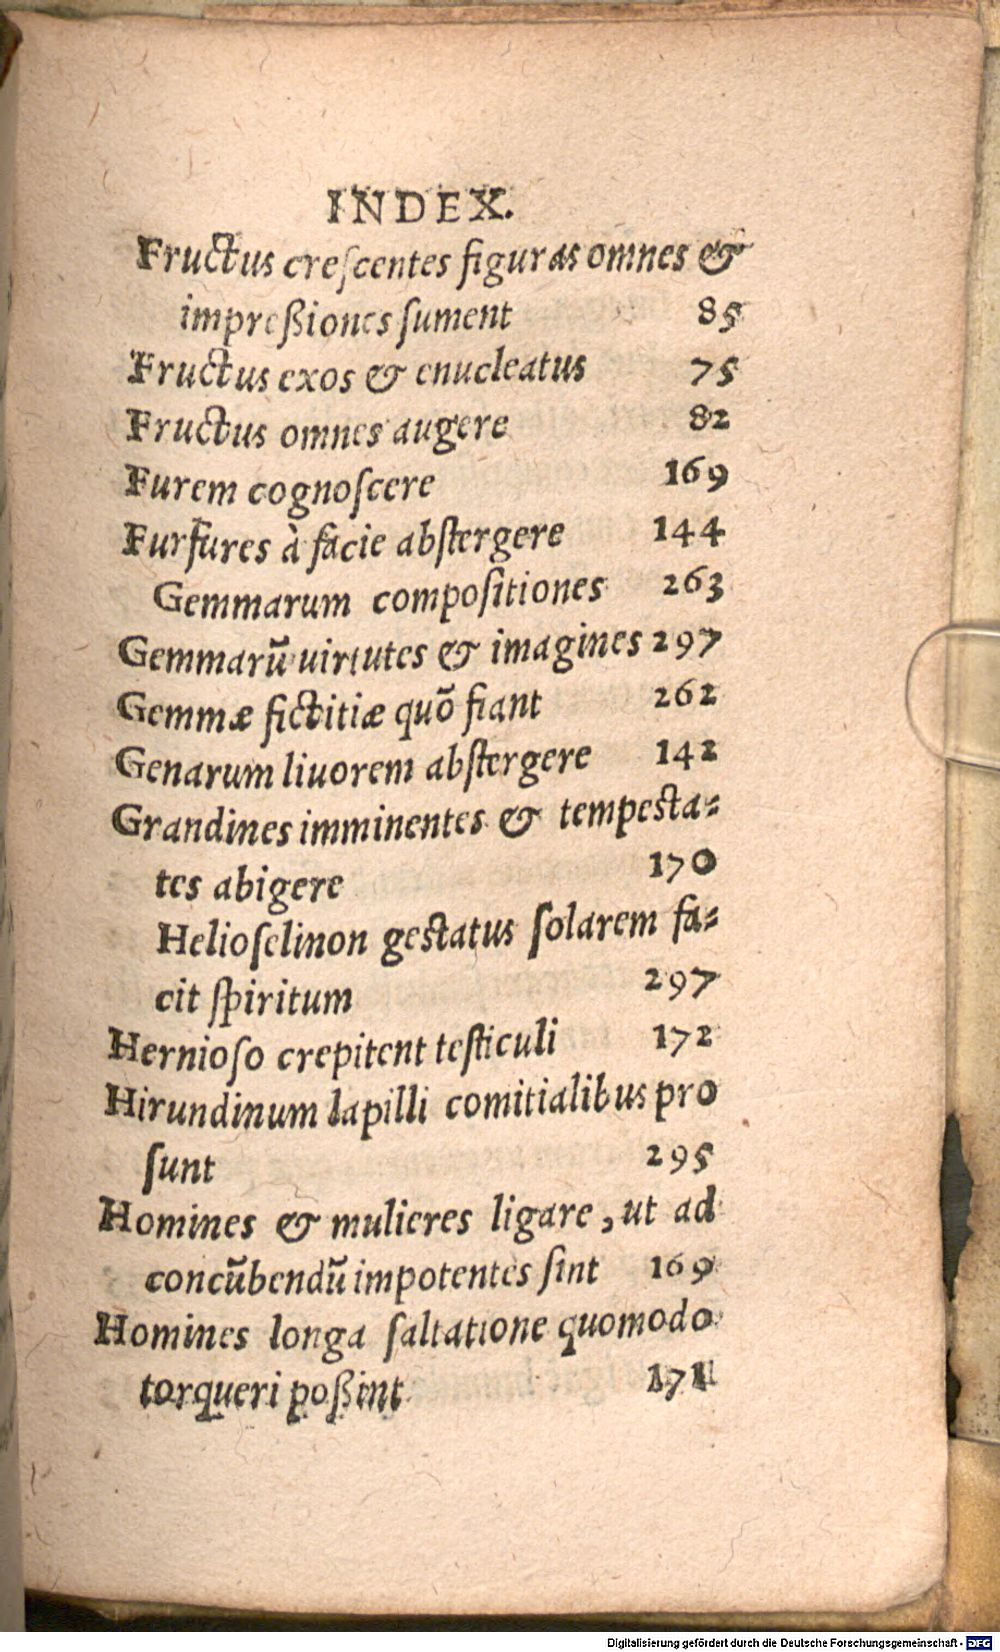 INDEX.
Fructus creſcentes figuras omnes &
impreßiones ſument 85
Fructus exos & enucleatus 75
Fructus omnes augere 82
Furem cognoſcere 169
Furfures à facie abſtergere 144
Gemmarum compoſitiones 263
Gemmarũ uirtutes & imagines 297
Gemmæ fictitiæ quõ fiant 262
Genarum liuorem abſtergere 142
Grandines imminentes & tempesta-
tes abigere 170
Helioſelinon gestatus ſolarem fa-
cit ſpiritum 297
Hernioſo crepitent teſticuli 172
Hirundinum lapilli comitialibus pro
ſunt 295
Homines & mulieres ligare, ut ad
concũbendũ impotentes ſint 169
Homines longa ſaltatione quomodo
torqueri poßint 171
Digitalisierung gefördert durch die Deutsche Forschungsgemeinschaft - DFG